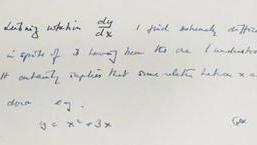 Leibniz notation dy/dx I find extremely
in spite of it having been the one I understood
It certainly implies that some relation between x a
down e.g.
y = x² + 3x